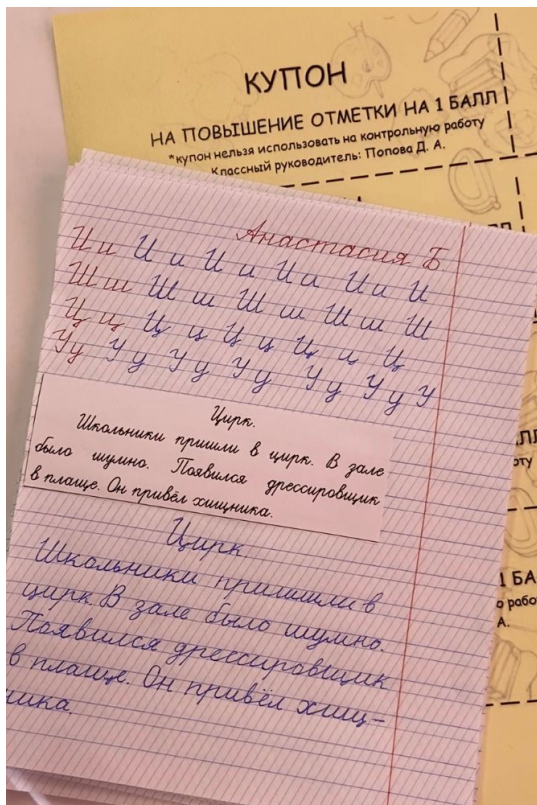 КУПОН
НА ПОВЫШЕНИЕ ОТМЕТКИ НА 1 БАЛЛ
*купон нельзя использовать на контрольную работу
Классный руководитель: Попова Д. А.
Анастасия Б
И и И и И и И и И и И
Ш ш Ш ш Ш ш Ш ш Ш
Ц ц Ц ц Ц ц Ц ц Ц
У у У у У у У у У у У у У
Цирк.
Школьники пришли в цирк. В зале
было шумно. Появился дрессировщик
в плаще. Он привёл хищника.
Цирк
Школьники пришли в
цирк. В зале было шумно.
Появился дрессировщик
в плаще. Он привёл хищ-
ника.